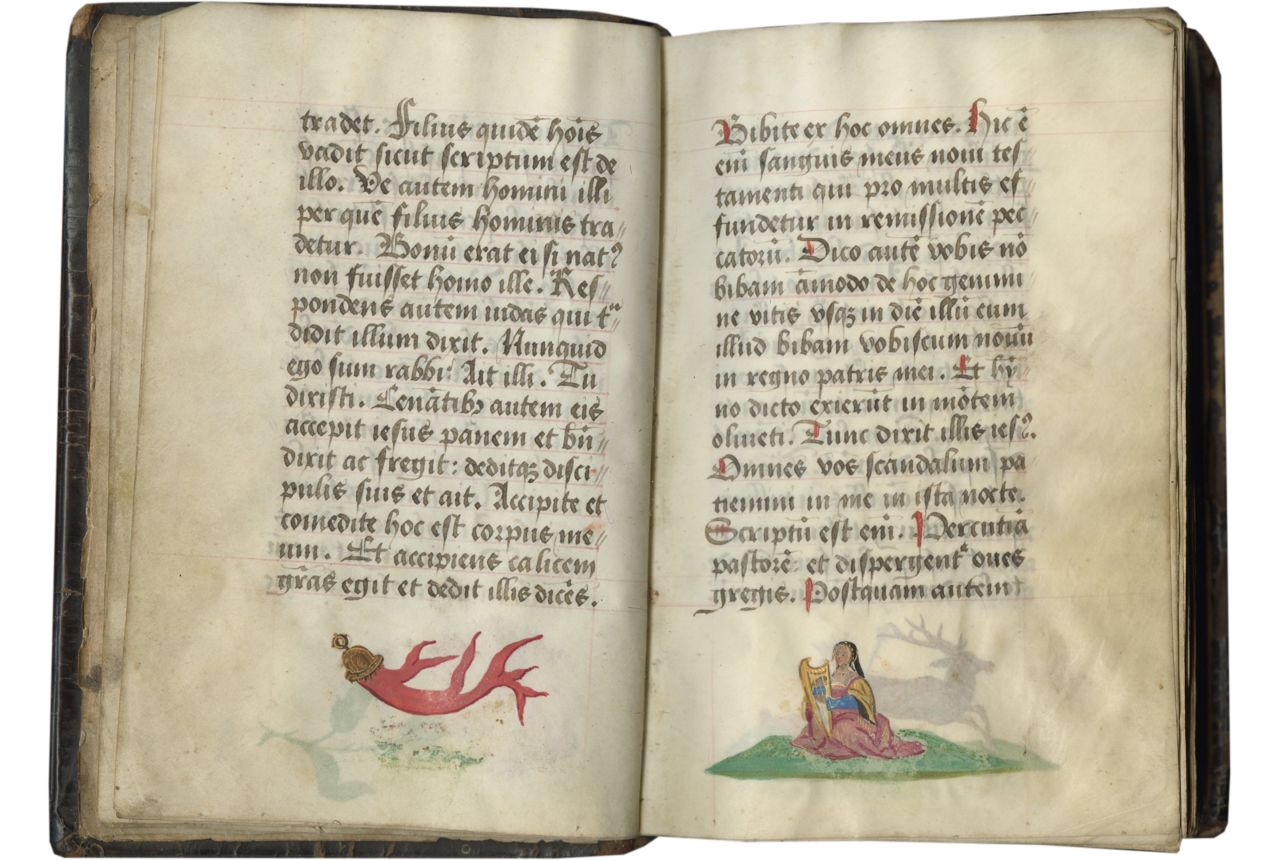 tradet. Filius quidē hoīs
vadit sicut scriptum est de
illo. Ve autem homini illi
per quē filius hominis tra//
detur. Bonū erat ei si natꝰ
non fuisset homo ille. Res//
pondens autem iudas qui tᵃ//
didit illum dixit. Nunquid
ego sum rabbi: Ait illi. Tu
dixisti. Cenātibꝫ autem eis
accepit iesus panem et bn̄//
dixit ac fregit: deditqꝫ disci//
pulis suis et ait. Accipite et
comedite hoc est corpus me//
um. Et accipiens calicem
grās egit et dedit illis dicēs.
Bibite ex hoc omnes. Hic ē
enī sanguis meus noui tes//
tamenti qui pro multis ef//
fundetur in remissionē pec//
catorū. Dico autē vobis nō
bibam āmodo de hoc genimi//
ne vitis vsqꝫ in diē illū cum
illud bibam vobiscum nouū
in regno patris mei. Et hy̅//
no dicto exierūt in mōtem
oliueti. Tunc dixit illis iesꝰ.
Omnes vos scandalum pa
tiemini in me in ista nocte.
Scriptū est enī. Percutiā
pastorē: et dispergentᷣ oues
gregis. Postquam autem